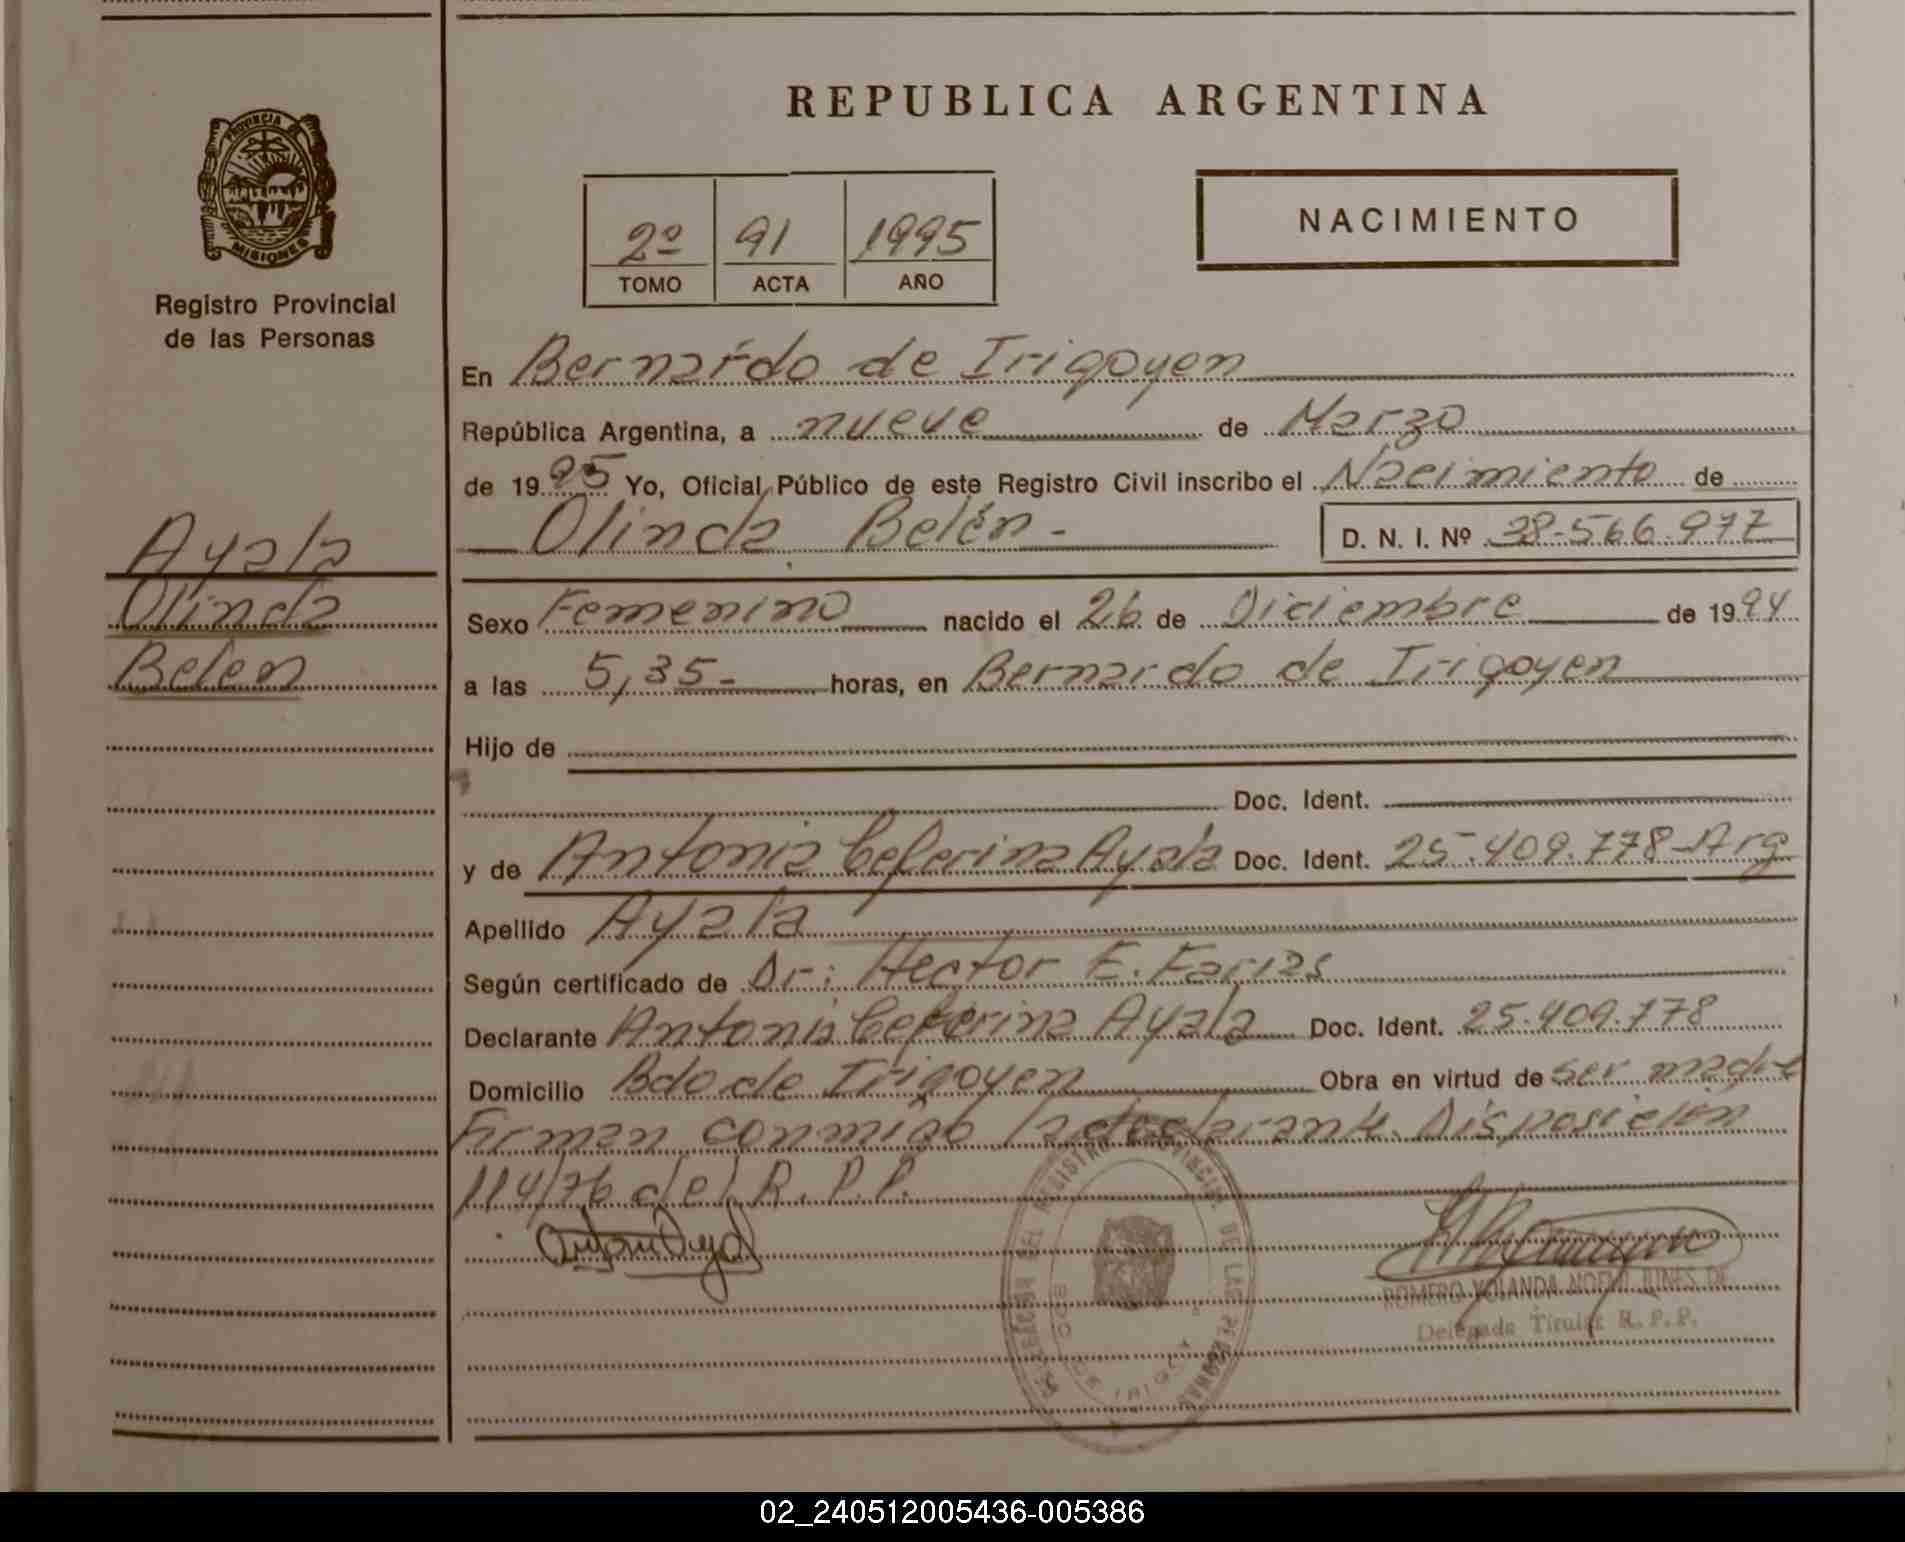 REPUBLICA ARGENTINA
PROVINCIA DE
MISIONES
Registro Provincial
de las Personas
2º 91 1995
TOMO ACTA AÑO
NACIMIENTO
En Bernardo de Irigoyen
República Argentina, a nueve de Marzo
de 1995 Yo, Oficial Público de este Registro Civil inscribo el Nacimiento de
Olinda Belén - D. N. I. Nº 38-566.977
Ayala
Olinda
Belen
Sexo Femenino nacido el 26 de Diciembre de 1994
a las 5,35- horas, en Bernardo de Irigoyen
Hijo de
Doc. Ident.
y de Antonia Ceferina Ayala Doc. Ident. 25.409.778-Arg
Apellido Ayala
Según certificado de Dr: Hector E. Farias
Declarante Antonia Ceferina Ayala Doc. Ident. 25.409.778
Domicilio Bdo de Irigoyen Obra en virtud de ser madre
Firman conmigo la declarante. Disposición
114/76 del R.P.P.
ROMERO YOLANDA NOEMI DE
Delegada Titular R.P.P.
02_240512005436-005386